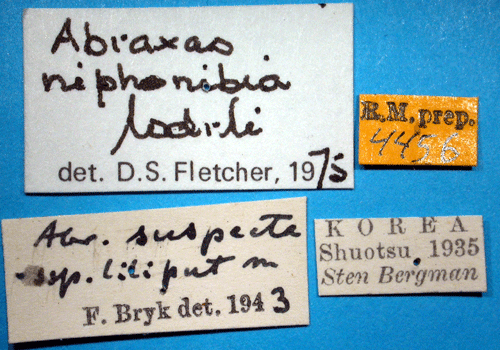 Abraxas
niphonibia
det. D.S. Fletcher, 1975
R.M. prep.
4456
Abr. suspecta
ssp. liliput m
F. Bryk det. 1943
KOREA
Shuotsu. 1935
Sten Bergman